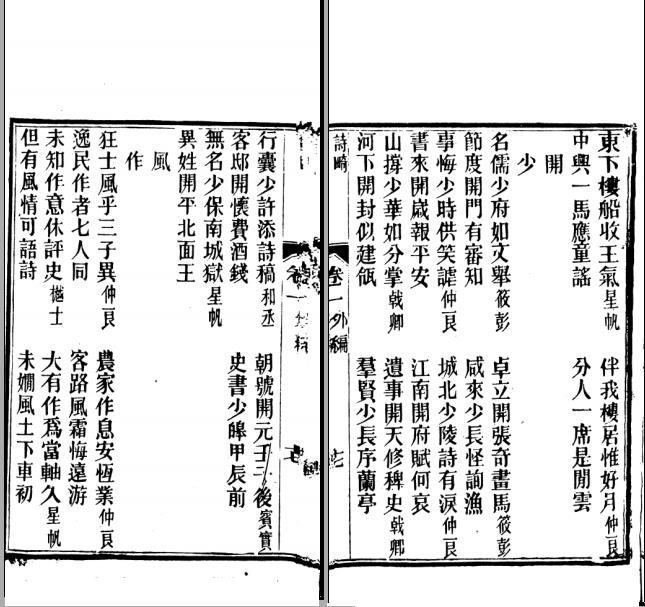 東下樓船收王氣星帆　伴我樓居惟好月仲良
中興一馬應童謠　分人一席是閒雲
開
少
名儒少府如文舉筱彭　卓立開張奇畫馬筱彭
節度開門有審知　咸來少長怪詢漁
事悔少時供笑謔仲良　城北少陵詩有淚仲良
書來開歲報平安　江南開府賦何哀
山擘少華如分掌戟卿　遺事開天修稗史戟卿
河下開封似建瓴　羣賢少長序蘭亭
詩畸　卷一外編
行囊少許添詩稿和丞　朝號開元壬　後賓實
客邸開懷費酒錢　史書少皞甲辰前
無名少保南城獄星帆
異姓開平北面王
風
作
狂士風乎三子異仲良　農家作息安恆業仲良
逸民作者七人同　客路風霜悔遠游
未知作意休評史樾士　大有作爲當軸久星帆
但有風情可語詩　未嫺風土下車初